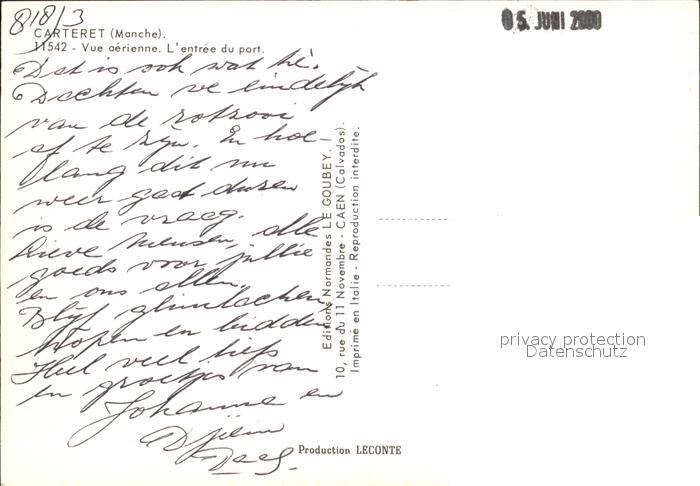 818/3
05. JUNI 2000
CARTERET (Manche).
11542 - Vue aérienne. L'entrée du port.
Dat is ook wat hè.
Dachten we eindelijk
van de rotzooi
af te zijn. En hoe-
lang dit nu
weer gaat duren
is de vraag.
Lieve mensen, alle
goeds voor jullie
en ons allen.
Blijf glimlachen,
hopen en bidden
Heel veel liefs
en groetjes van
Johanna en
Daag.
Editions Normandes LE GOUBEY.
10, rue du 11 Novembre - CAEN (Calvados).
Imprimé en Italie - Reproduction interdite.
privacy protection
Datenschutz
Production LECONTE